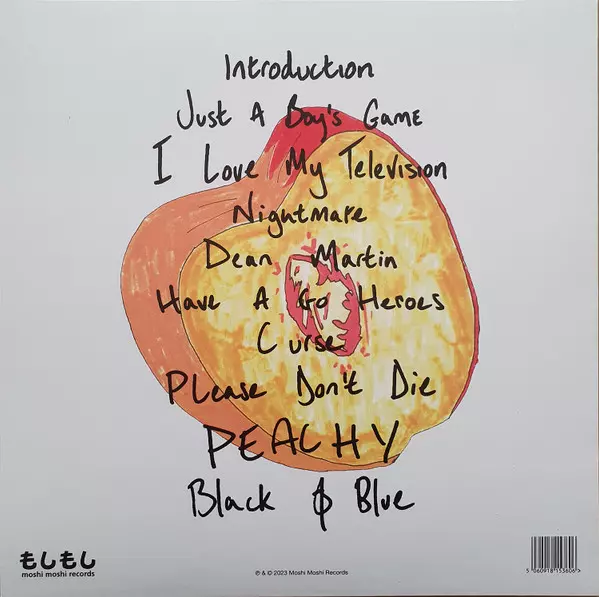 Introduction
Just A Boy's Game
I Love My Television
Nightmare
Dean Martin
Have A Go Heroes
Curse
Please Don't Die
PEACHY
Black & Blue
もしもし
moshi moshi records
℗ & © 2023 Moshi Moshi Records
5 060918 153606 >